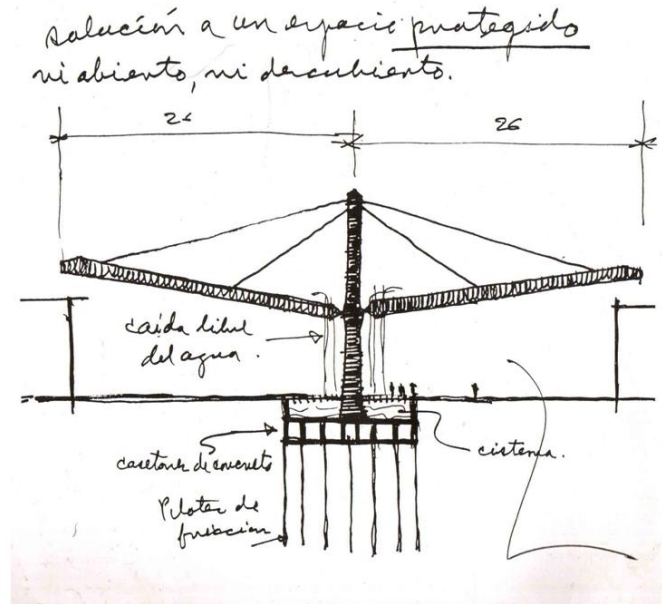 solución a un espacio protegido
ni abierto, ni descubierto.
26
26
caída libre
del agua.
casetones de concreto
cisterna.
Pilotes de
fricción